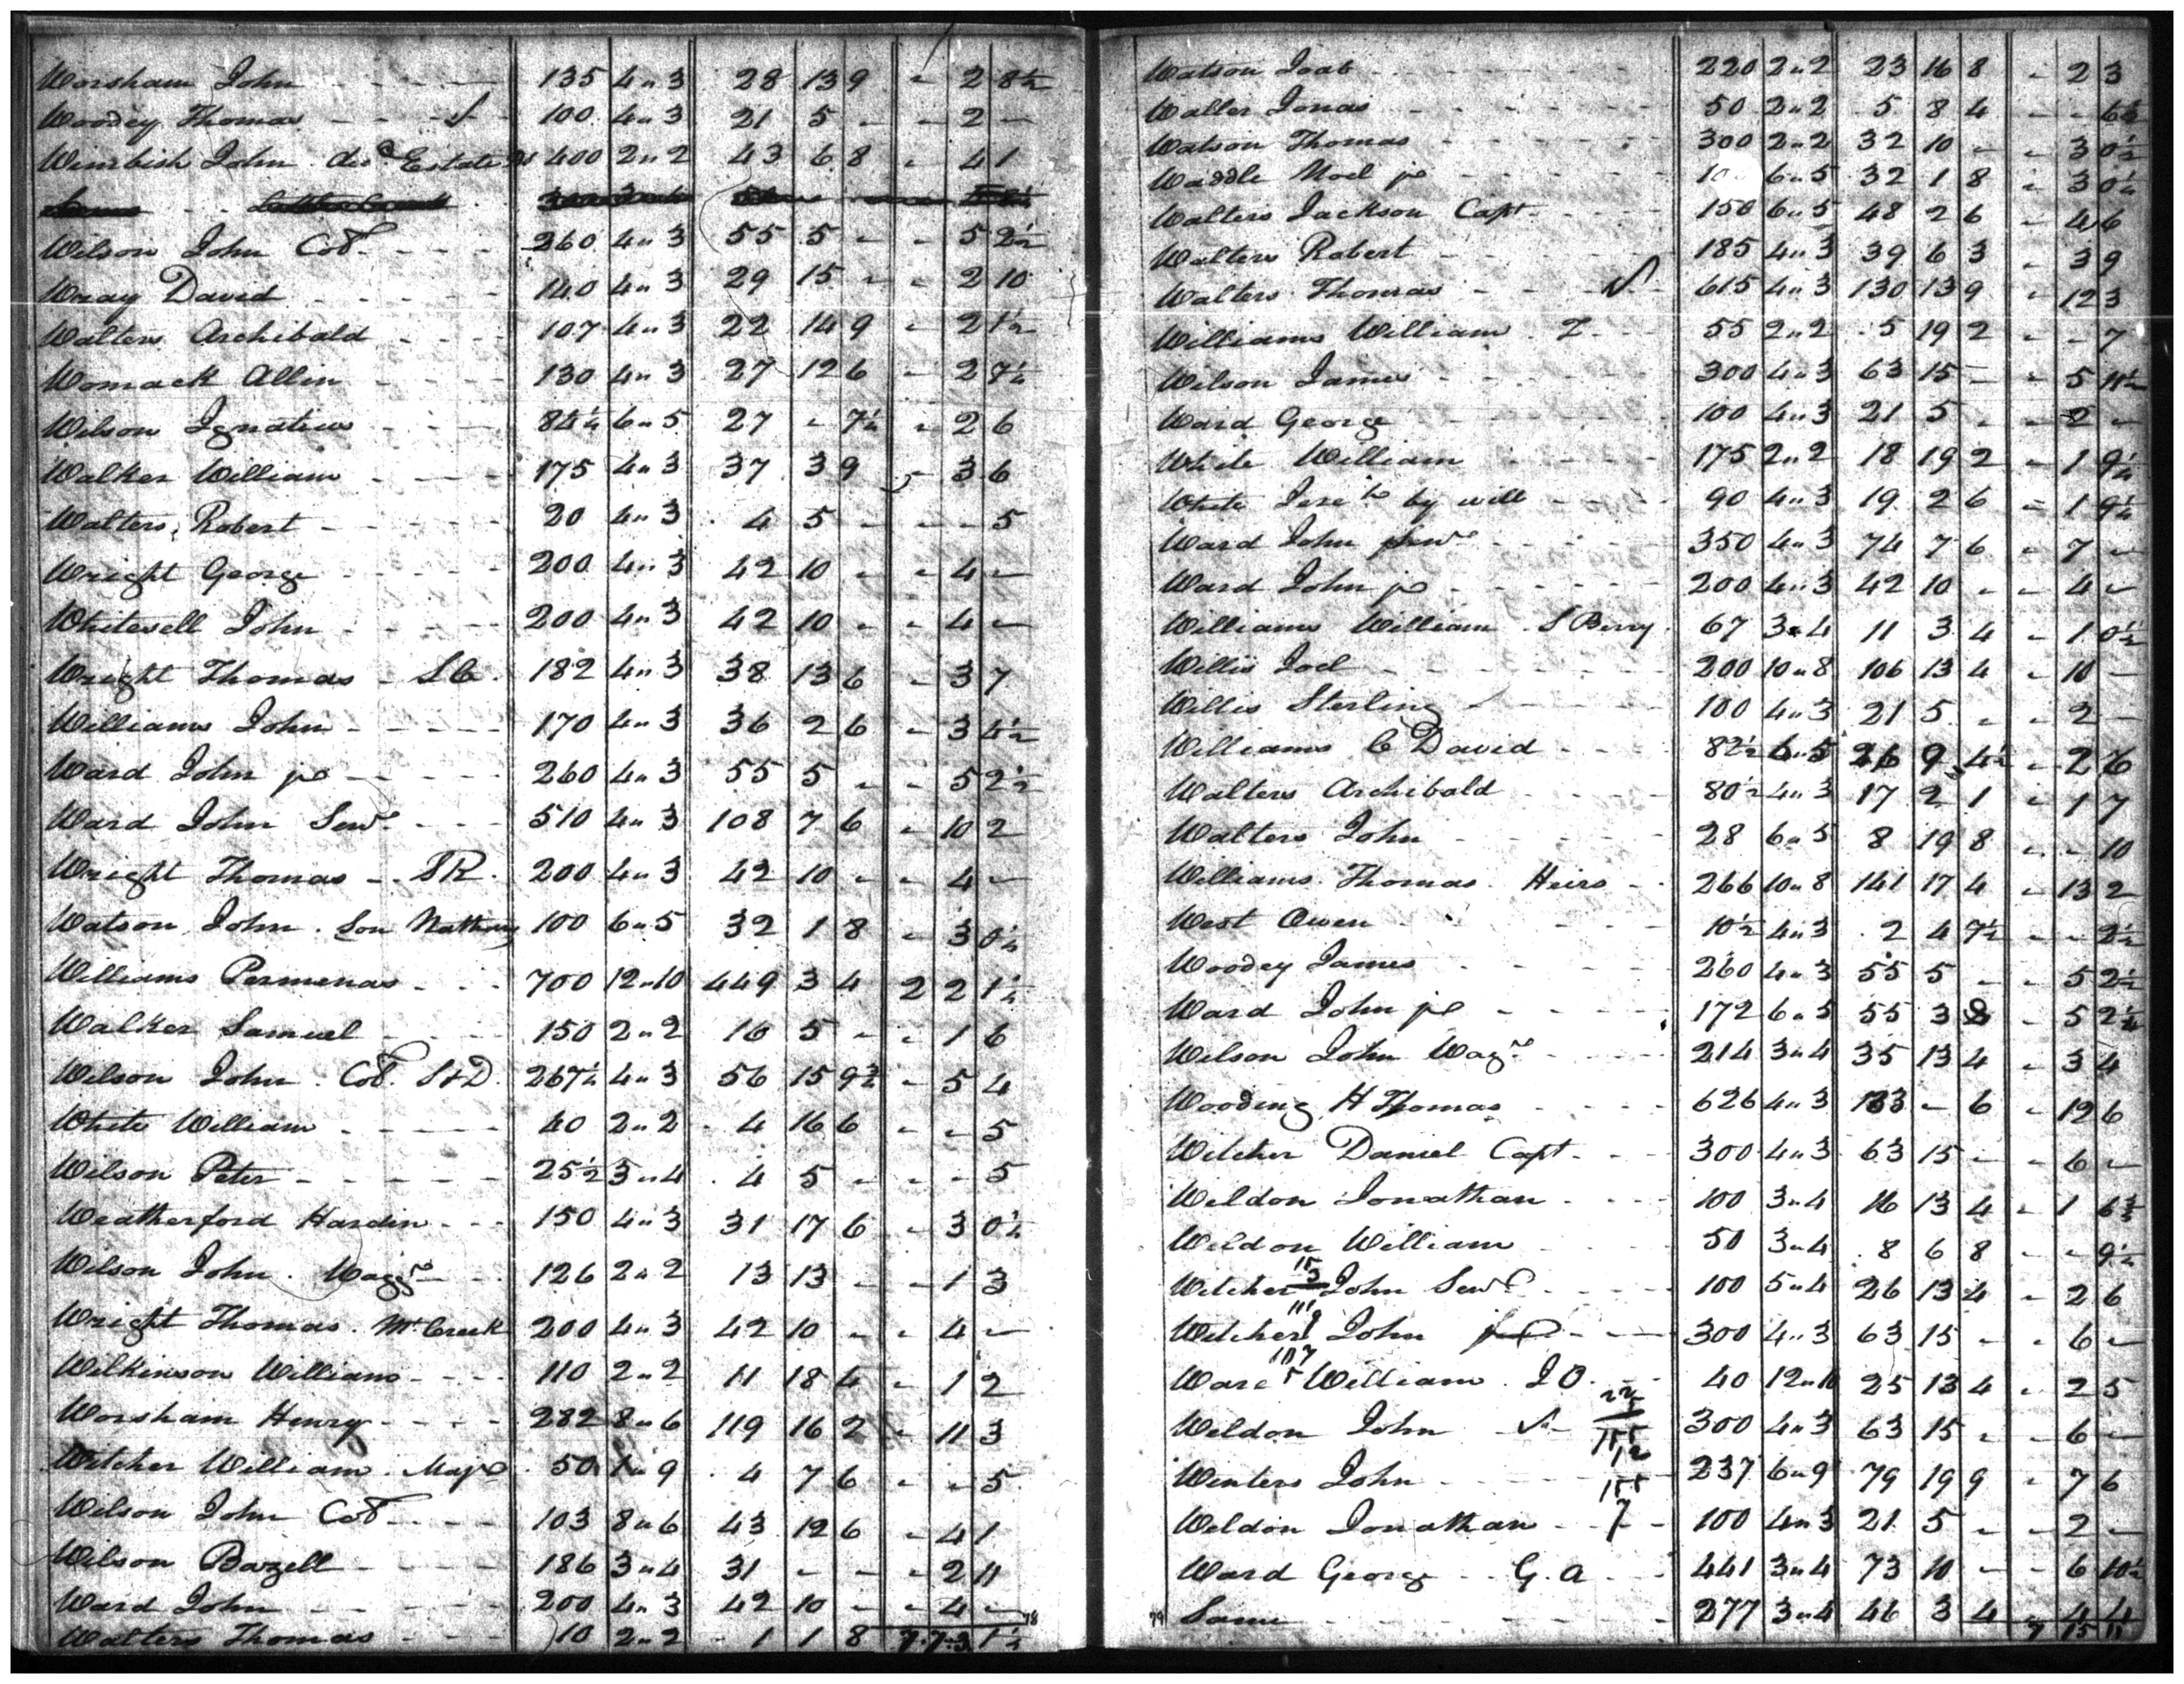 Worsham John 135 4"3 28 13 9 - 2 8½
Woodey Thomas 100 4"3 21 5 - - 2 -
Wimbish John decd Estate 400 2"2 43 6 8 - 4 1
Wilson John Col 260 4"3 55 5 - - 5 2½
Wray David 140 4"3 29 15 - - 2 10
Walters Archibald 107 4"3 22 14 9 - 2 1½
Womack Allin 130 4"3 27 12 6 - 2 7¼
Wilson Ignatius 84¼ 6"5 27 - 7¼ - 2 6
Walker William 175 4"3 37 3 9 - 3 6
Walters Robert 20 4"3 4 5 - - - 5
Wright George 200 4"3 42 10 - - 4 -
Whitesell John 200 4"3 42 10 - - 4 -
Wright Thomas S C 182 4"3 38 13 6 - 3 7
Williams John 170 4"3 36 2 6 - 3 4½
Ward John jr 260 4"3 55 5 - - 5 2½
Ward John Senr 510 4"3 108 7 6 - 10 2
Wright Thomas S R 200 4"3 42 10 - - 4 -
Watson John Son Nathan 100 6"5 32 1 8 - 3 0¼
Williams Permenas 700 12"10 449 3 4 2 2 1¼
Walker Samuel 150 2"2 16 5 - - 1 6
Wilson John Col S&D 267¼ 4"3 56 15 9¾ - 5 4
White William 40 2"2 4 16 6 - - 5
Wilson Peter 25½ 3"4 4 5 - - - 5
Weatherford Hardin 150 4"3 31 17 6 - 3 0½
Wilson John Waggr 126 2"2 13 13 - - 1 3
Wright Thomas Mt Creek 200 4"3 42 10 - - 4 -
Wilkinson William 110 2"2 11 18 4 - 1 2
Worsham Henry 282 8"6 119 16 2 - 11 3
Witcher William Majr 50 1"9 4 7 6 - - 5
Wilson John Col 103 8"6 43 12 6 - 4 1
Wilson Bazell 186 3"4 31 - - - 2 11
Ward John 200 4"3 42 10 - - 4 -
Walters Thomas 10 2"2 1 1 8 7 7 3 1½
78
Watson Joab 220 2"2 23 16 8 - 2 3
Waller Jonas 50 2"2 5 8 4 - - 6½
Watson Thomas 300 2"2 32 10 - - 3 0½
Waddle Noel jr 6"5 32 1 8 - 3 0¼
Walters Jackson Capt 150 6"5 48 2 6 - 4 6
Walters Robert 185 4"3 39 6 3 - 3 9
Walters Thomas 615 4"3 130 13 9 - 12 3
Williams William T 55 2"2 5 19 2 - - 7
Wilson James 300 4"3 63 15 - - 5 11½
Ward George 100 4"3 21 5 - - 2 -
White William 175 2"2 18 19 2 - 1 9¼
White Jereh by will 90 4"3 19 2 6 - 1 9¼
Ward John Senr 350 4"3 74 7 6 - 7 -
Ward John jr 200 4"3 42 10 - - 4 -
Williams William S Berry 67 3"4 11 3 4 - 1 0½
Willis Joel 200 10"8 106 13 4 - 10 -
Willis Sterling 100 4"3 21 5 - - 2 -
Williams C David 82½ 6"5 26 9 4½ - 2 6
Walters Archibald 80½ 4"3 17 2 1 - 1 7
Walters John 28 6"5 8 19 8 - - 10
Williams Thomas Heirs 266 10"8 141 17 4 - 13 2
West Owen 10½ 4"3 2 4 7½ - - 2½
Woodey James 260 4"3 55 5 - - 5 2½
Ward John jr 172 6"5 55 3 8 - 5 2¼
Wilson John Wagr 214 3"4 35 13 4 - 3 4
Wooding H Thomas 626 4"3 133 - 6 - 12 6
Witcher Daniel Capt 300 4"3 63 15 - - 6 -
Weldon Jonathan 100 3"4 16 13 4 - 1 6¾
Weldon William 50 3"4 8 6 8 - - 9½
Witcher John Senr 100 5"4 26 13 4 - 2 6
Witcher John jr 300 4"3 63 15 - - 6 -
Ware William J O 40 12"10 25 13 4 - 2 5
Weldon John 300 4"3 63 15 - - 6 -
Winters John 237 6"9 79 19 9 - 7 6
Weldon Jonathan 100 4"3 21 5 - - 2 -
Ward George G. A 441 3"4 73 10 - - 6 10½
79 Same 277 3"4 46 3 4 - 4 4
7 15 11